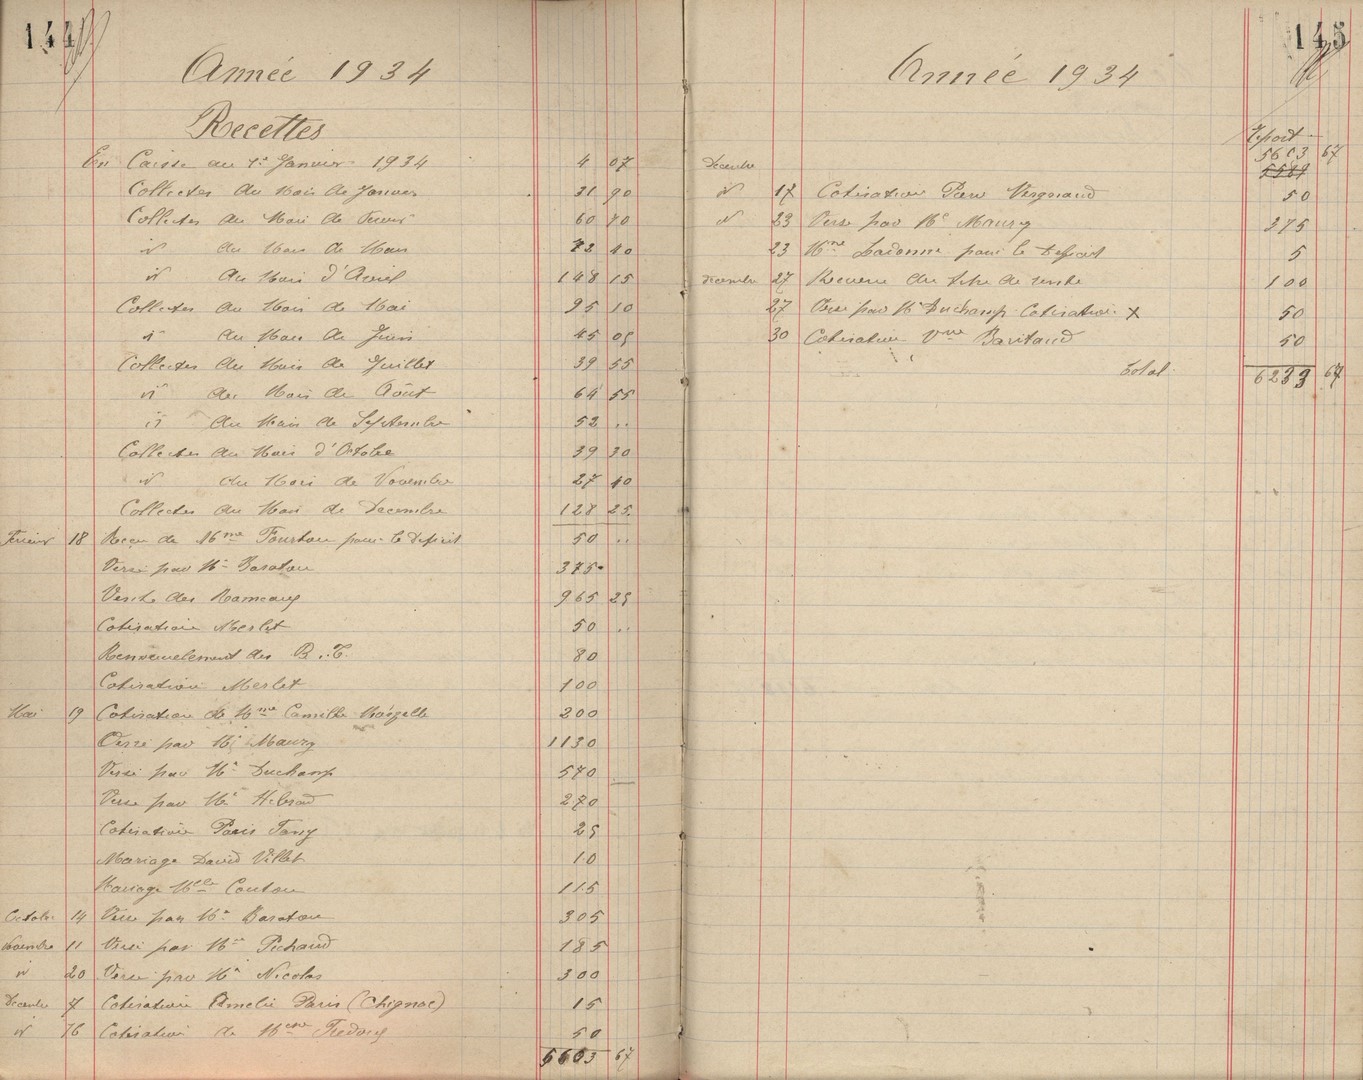 144
Année 1934
Recettes
En Caisse au 1er Janvier 1934 4 07
Collectes du Mois de Janvier 31 90
Collectes du Mois de Fevrier 60 70
id du Mois de Mars 72 40
id du Mois d'Avril 148 15
Collectes du Mois de Mai 95 10
id du Mois de Juin 45 05
Collectes du Mois de Juillet 39 55
id du Mois de Août 64 55
id du Mois de Septembre 52 ..
Collectes du Mois d'Octobre 39 30
id du Mois de Novembre 27 40
Collectes du Mois de Decembre 128 25
Fevrier 18 Reçu de Mme pour le Deficit 50 ..
Versé par Mr Baraton 375
Vente des Rameaux 965 25
Cotisation Merlet 50 ..
Renouvelement des B.T. 80
Cotisation Merlet 100
Mai 19 Cotisation de Mme Camille 200
Versé par Mr Maury 1130
Versé par Mr Duchamp 570
Versé par Mr 270
Cotisation Paris Fany 25
Mariage David Villet 10
Mariage Melle Coutou 115
Octobre 14 Versé par Mr Baraton 305
Novembre 11 Versé par Mr Pichaud 185
id 20 Versé par Mr Nicolas 300
Decembre 7 Cotisation Amelie Paris (Chignac) 15
id 16 Cotisation de Mme 50
5603 67
145
Année 1934
Report
5603 67
Decembre
id 17 Cotisation Vergnaud 50
id 23 Versé par Mr Maury 275
23 Mme pour le Deficit 5
Decembre 27 Revenu du titre de rente 100
27 Versé par Mr Duchamp Cotisation X 50
30 Cotisation Vve Baritaud 50
total 6233 67